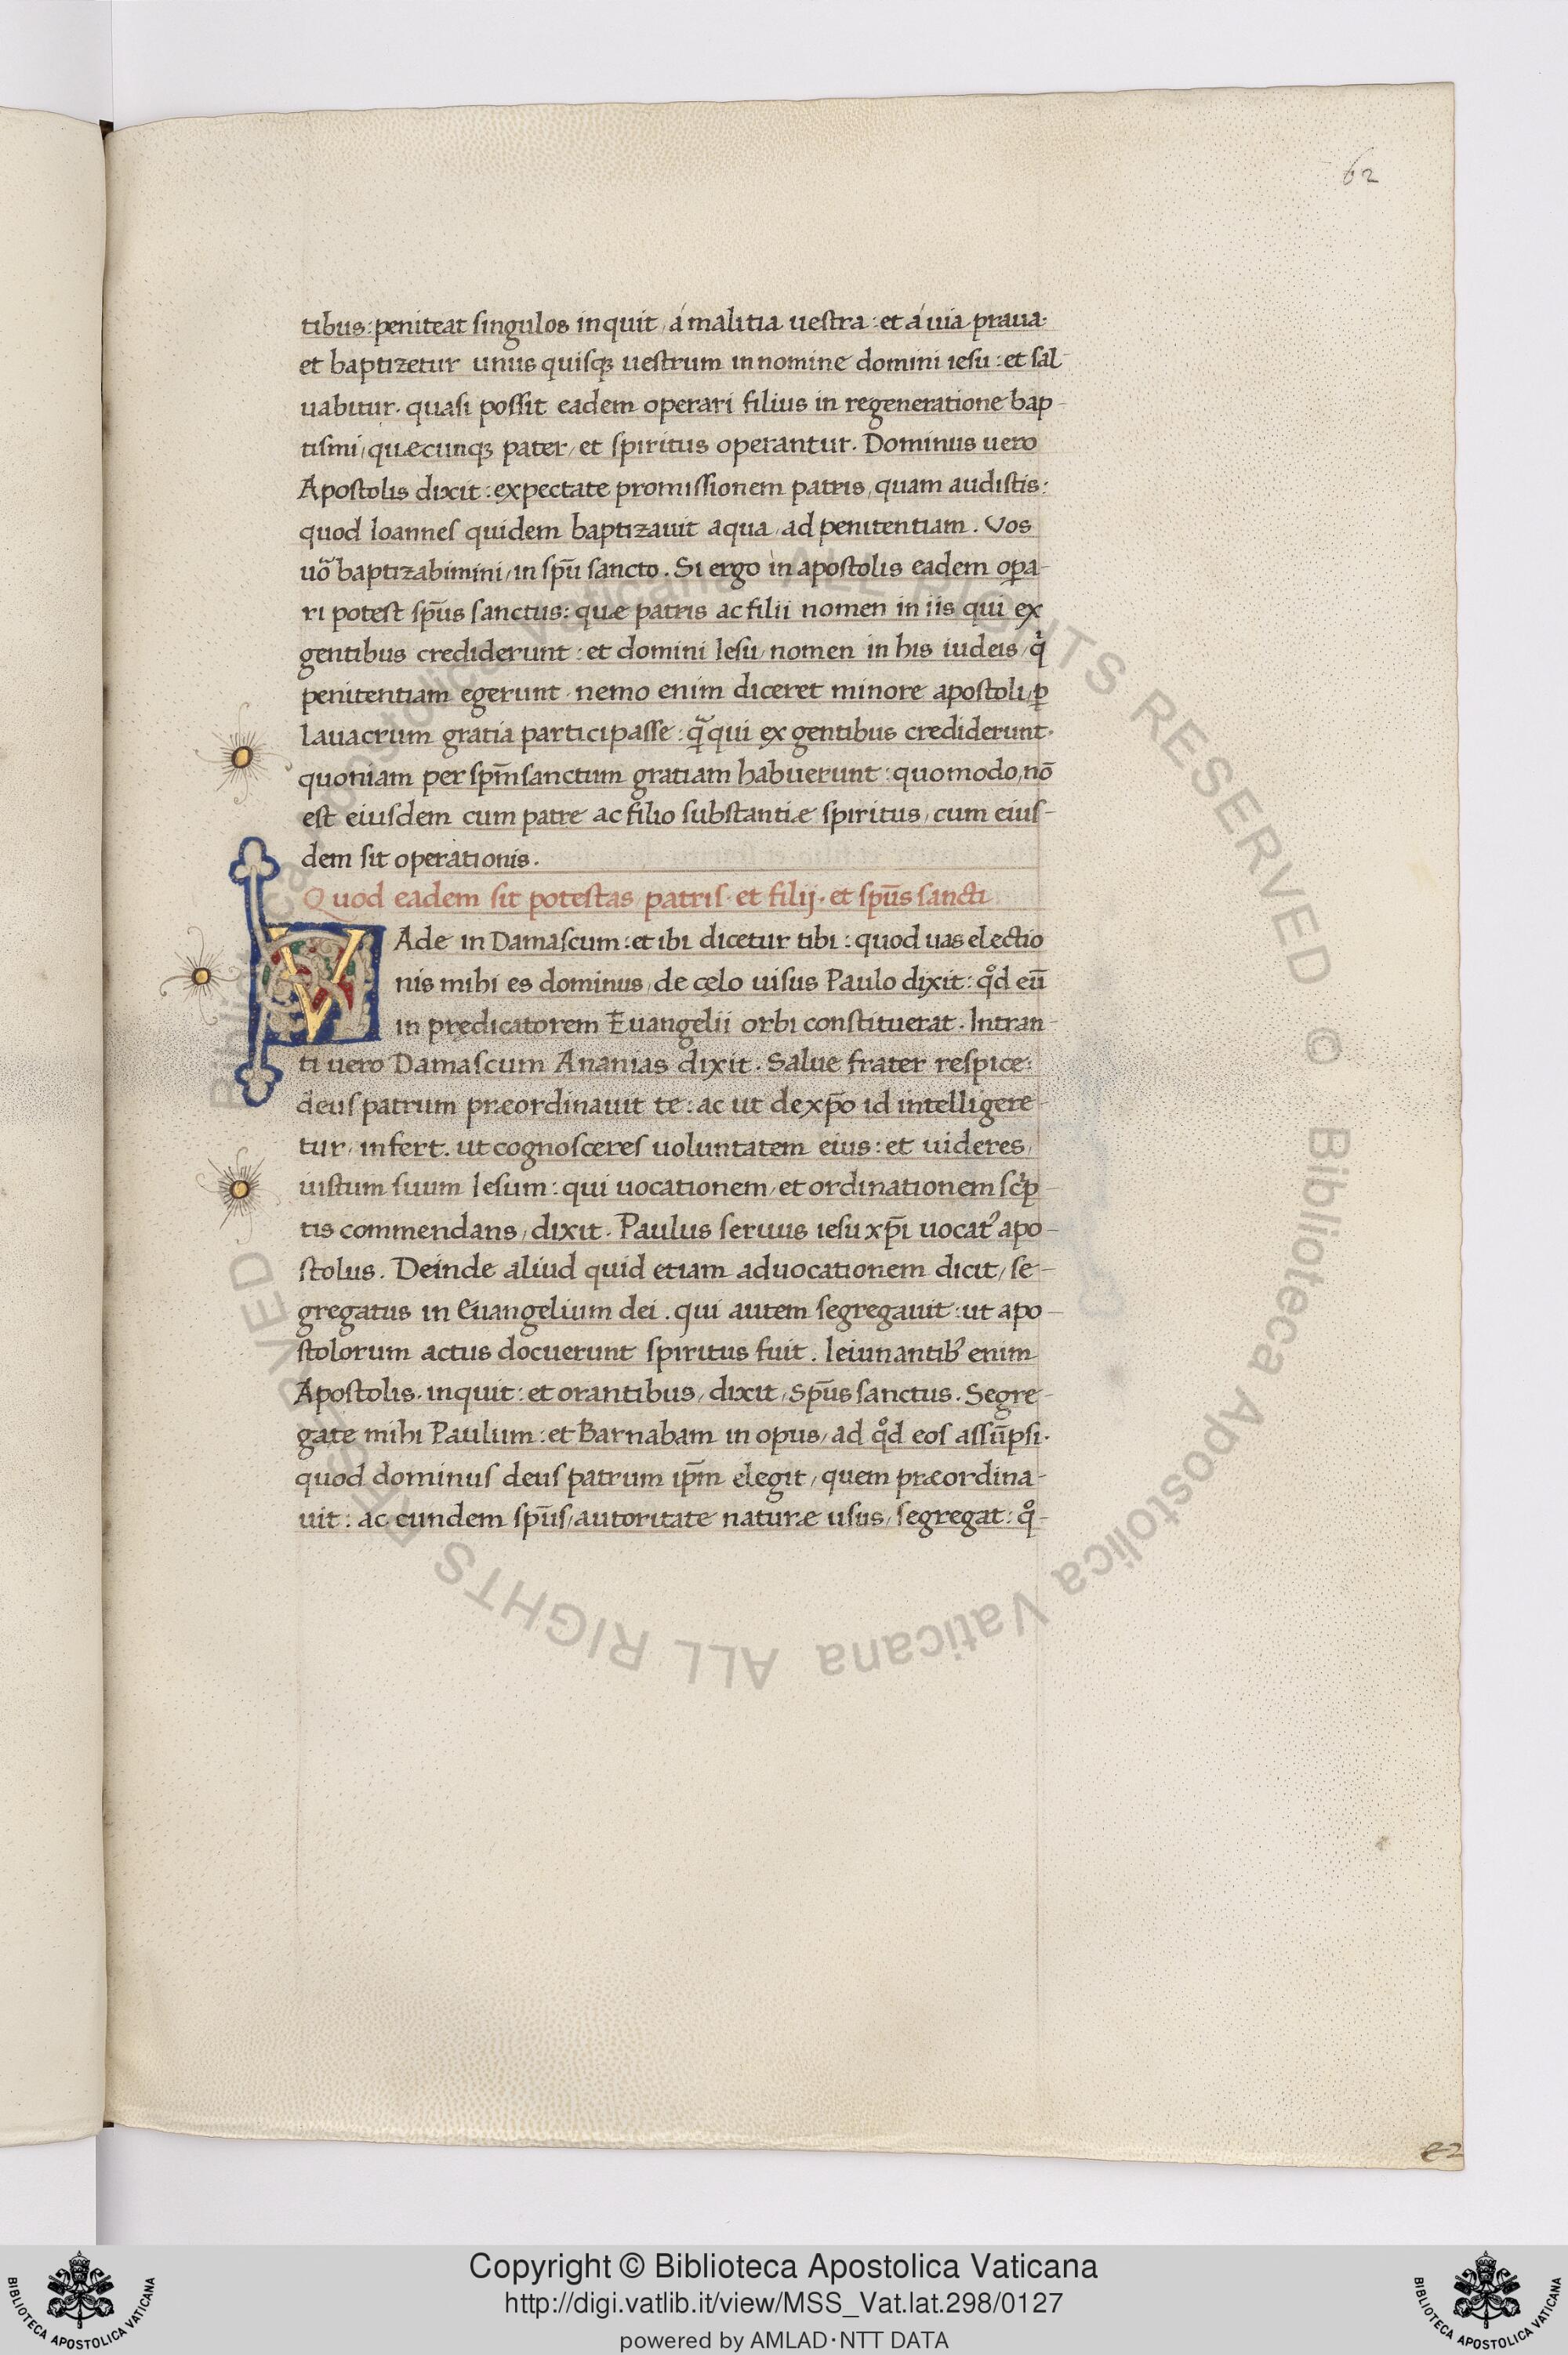 62
tibus: peniteat singulos inquit, á malitia uestra: et á uia praua·
et baptizetur unus quisqꝫ uestrum in nomine domini iesu: et sal-
uabitur. quasi possit eadem operari filius in regeneratione bap-
tismi, quæcunqꝫ pater, et spiritus operantur. Dominus uero
Apostolis dixit: expectate promissionem patris, quam audistis:
quod Ioannes quidem baptizauit aqua, ad penitentiam. Vos
uo᷈ baptizabimini, in spū sancto. Si ergo in apostolis eadem oꝑa-
ri potest sp̄us sanctus: quæ patris ac filii nomen in iis qui ex
gentibus crediderunt: et domini Iesu, nomen in his iudeis, qͥ
penitentiam egerunt. nemo enim diceret minore apostoli, ꝑ
lauacrum gratia participasse: qᷓ qui ex gentibus crediderunt.
quoniam per spm̄ sanctum gratiam habuerunt: quomodo, nō
est eiusdem cum patre ac filio substantiæ spiritus, cum eius-
dem sit operationis.
Quod eadem sit potestas patris. et filij. et sp̄us sancti
VAde in Damascum: et ibi dicetur tibi: quod uas electio
nis mihi es dominus, de cęlo uisus Paulo dixit: qͦd eū
in prędicatorem Euangelii orbi constituerat. Intran-
ti uero Damascum Ananias dixit. Salue frater respice:
deus patrum præordinauit te: ac ut de xp̄o id intelligere-
tur, infert. ut cognosceres uoluntatem eius: et uideres,
iustum suum Iesum: qui uocationem, et ordinationem scͥp-
tis commendans, dixit. Paulus seruus iesu xp̄i uocatꝰ apo-
stolus. Deinde aliud quid etiam aduocationem dicit, se-
gregatus in Euangelium dei. qui autem segregauit: ut apo-
stolorum actus docuerunt spiritus fuit. Ieiunantibꝰ enim
Apostolis. inquit: et orantibus, dixit, Sp̄us sanctus. Segre-
gate mihi Paulum: et Barnabam in opus, ad qͦd eos assūpsi.
quod dominus deus patrum ip̄m elegit, quem præordina-
uit: ac eundem sp̄us, autoritate naturæ usus, segregat: qͦ-
e2
Biblioteca Apostolica Vaticana ALL RIGHTS RESERVED © Biblioteca Apostolica Vaticana ALL RIGHTS RESERVED
Copyright © Biblioteca Apostolica Vaticana
http://digi.vatlib.it/view/MSS_Vat.lat.298/0127
powered by AMLAD·NTT DATA
BIBLIOTECA APOSTOLICA VATICANA
BIBLIOTECA APOSTOLICA VATICANA